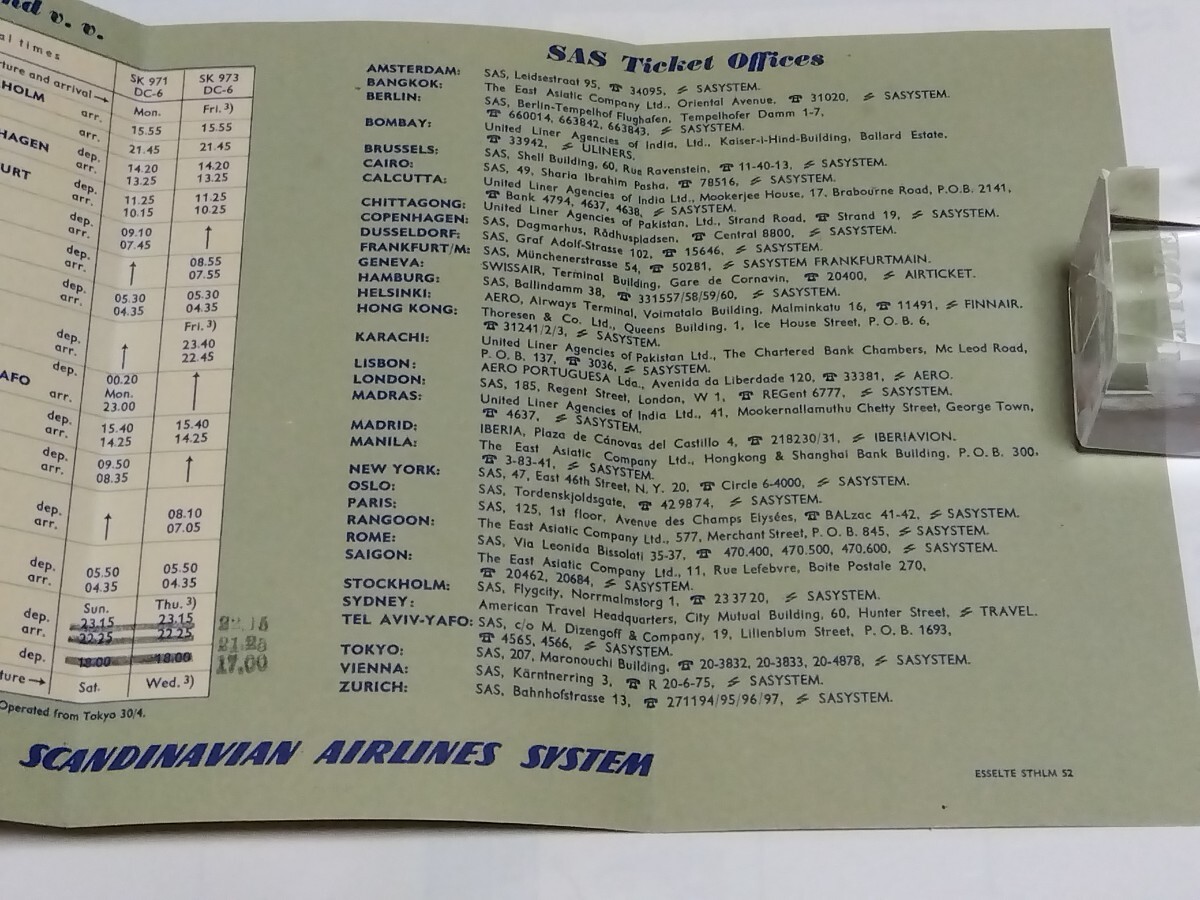 nd v. v.
al times
ture and arrival→
SK 971 SK 973
DC-6 DC-6
HOLM arr. Mon. Fri. 3)
arr. 15.55 15.55
HAGEN dep. 21.45 21.45
arr. 14.20 14.20
URT dep. 13.25 13.25
arr. 11.25 11.25
dep. 10.15 10.25
arr. 09.10 ↑
dep. 07.45
arr. ↑ 08.55
dep. 07.55
arr. 05.30 05.30
04.35 04.35
Fri. 3)
dep. ↑ 23.40
arr. 22.45
dep. 00.20 ↑
AFO arr. Mon.
23.00
dep. 15.40 15.40
arr. 14.25 14.25
dep. 09.50 ↑
arr. 08.35
dep. ↑ 08.10
arr. 07.05
dep. 05.50 05.50
arr. 04.35 04.35
Sun. Thu. 3)
dep. 23.15 23.15
arr. 22.25 22.25 21.25
dep. 18.00 18.00 17.00
ture→ Sat. Wed. 3)
Operated from Tokyo 30/4.
SAS Ticket Offices
AMSTERDAM: SAS, Leidsestraat 95, ☎ 34095, SASYSTEM.
BANGKOK: The East Asiatic Company Ltd., Oriental Avenue. ☎ 31020, SASYSTEM.
BERLIN: SAS, Berlin-Tempelhof Flughafen, Tempelhofer Damm 1-7,
☎ 660014, 663842, 663843, SASYSTEM.
BOMBAY: United Liner Agencies of India, Ltd., Kaiser-i-Hind-Building, Ballard Estate,
☎ 33942, ULINERS.
BRUSSELS: SAS, Shell Building, 60, Rue Ravenstein, ☎ 11-40-13, SASYSTEM.
CAIRO: SAS, 49, Sharia Ibrahim Pasha, ☎ 78516, SASYSTEM.
CALCUTTA: United Liner Agencies of India Ltd., Mookerjee House, 17, Brabourne Road, P.O.B. 2141,
☎ Bank 4794, 4637, 4638, SASYSTEM.
CHITTAGONG: United Liner Agencies of Pakistan, Ltd., Strand Road, ☎ Strand 19, SASYSTEM.
COPENHAGEN: SAS, Dagmarhus, Rådhuspladsen, ☎ Central 8800, SASYSTEM.
DUSSELDORF: SAS, Graf Adolf-Strasse 102, ☎ 15646, SASYSTEM.
FRANKFURT/M: SAS, Münchenerstrasse 54, ☎ 50281, SASYSTEM FRANKFURTMAIN.
GENEVA: SWISSAIR, Terminal Building, Gare de Cornavin, ☎ 20400, AIRTICKET.
HAMBURG: SAS, Ballindamm 38, ☎ 331557/58/59/60, SASYSTEM.
HELSINKI: AERO, Airways Terminal, Voimatalo Building, Malminkatu 16, ☎ 11491, FINNAIR.
HONG KONG: Thoresen & Co. Ltd., Queens Building, 1, Ice House Street, P.O.B. 6,
☎ 31241/2/3, SASYSTEM.
KARACHI: United Liner Agencies of Pakistan Ltd., The Chartered Bank Chambers, Mc Leod Road,
P.O.B. 137, ☎ 3036, SASYSTEM.
LISBON: AERO PORTUGUESA Lda., Avenida da Liberdade 120, ☎ 33381, AERO.
LONDON: SAS, 185, Regent Street, London, W 1, ☎ REGent 6777, SASYSTEM.
MADRAS: United Liner Agencies of India Ltd., 41, Mookernallamuthu Chetty Street, George Town,
☎ 4637, SASYSTEM.
MADRID: IBERIA, Plaza de Cánovas del Castillo 4, ☎ 218230/31, IBERIAVION.
MANILA: The East Asiatic Company Ltd., Hongkong & Shanghai Bank Building, P.O.B. 300,
☎ 3-83-41, SASYSTEM.
NEW YORK: SAS, 47, East 46th Street, N.Y. 20, ☎ Circle 6-4000, SASYSTEM.
OSLO: SAS, Tordenskjoldsgate, ☎ 429874, SASYSTEM.
PARIS: SAS, 125, 1st floor, Avenue des Champs Elysées, ☎ BALzac 41-42, SASYSTEM.
RANGOON: The East Asiatic Company Ltd., 577, Merchant Street, P.O.B. 845, SASYSTEM.
ROME: SAS, Via Leonida Bissolati 35-37, ☎ 470.400, 470.500, 470.600, SASYSTEM.
SAIGON: The East Asiatic Company Ltd., 11, Rue Lefebvre, Boite Postale 270,
☎ 20462, 20684, SASYSTEM.
STOCKHOLM: SAS, Flygcity, Norrmalmstorg 1, ☎ 233720, SASYSTEM.
SYDNEY: American Travel Headquarters, City Mutual Building, 60, Hunter Street, TRAVEL.
TEL AVIV-YAFO: SAS, c/o M. Dizengoff & Company, 19, Lilienblum Street, P.O.B. 1693,
☎ 4565, 4566, SASYSTEM.
TOKYO: SAS, 207, Maronouchi Building, ☎ 20-3832, 20-3833, 20-4878, SASYSTEM.
VIENNA: SAS, Kärntnerring 3, ☎ R 20-6-75, SASYSTEM.
ZURICH: SAS, Bahnhofstrasse 13, ☎ 271194/95/96/97, SASYSTEM.
SCANDINAVIAN AIRLINES SYSTEM
ESSELTE STHLM 52